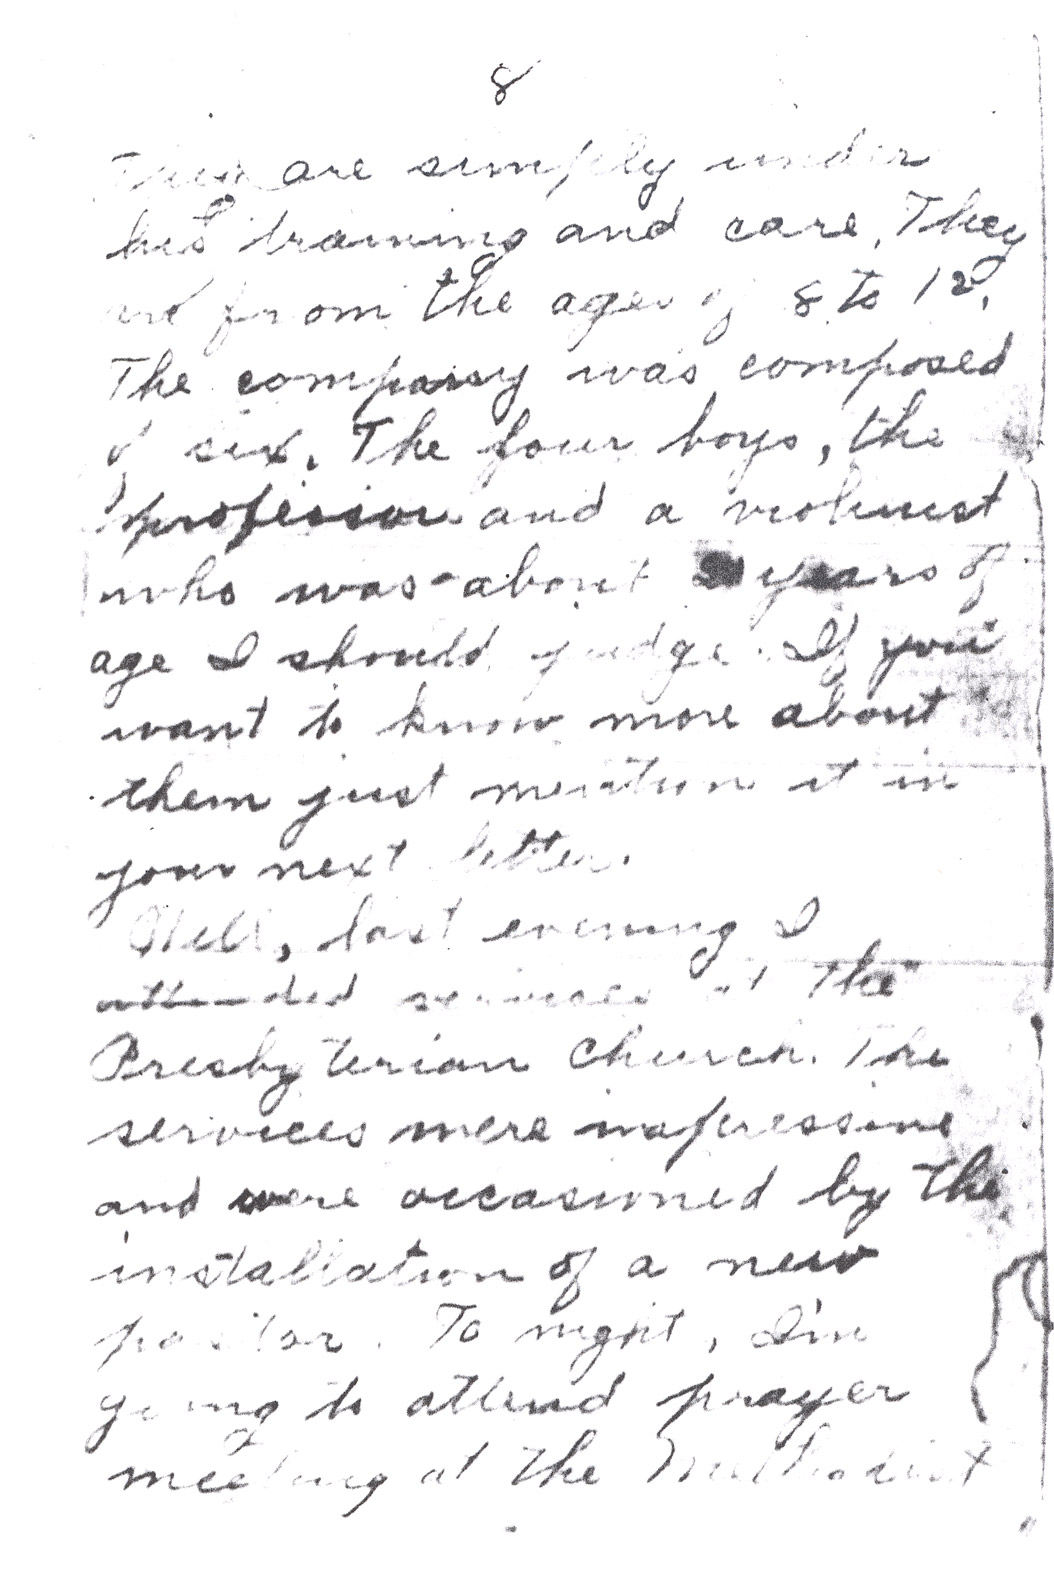 8
They are simply under
his training and care. They
are from the ages of 8 to 12.
The company was composed
of six. The four boys, the
professor and a violinist
who was about years of
age I should judge. If you
want to know more about
them just mention it in
your next letter.
Well, last evening I
attended services at the
Presbyterian Church. The
services were impressive
and were occasioned by the
installation of a new
pastor. To night, I'm
going to attend prayer
meeting at the Methodist